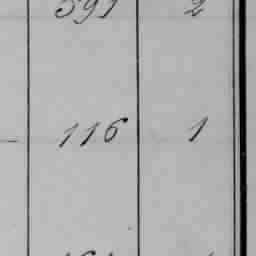 591 2
116 1